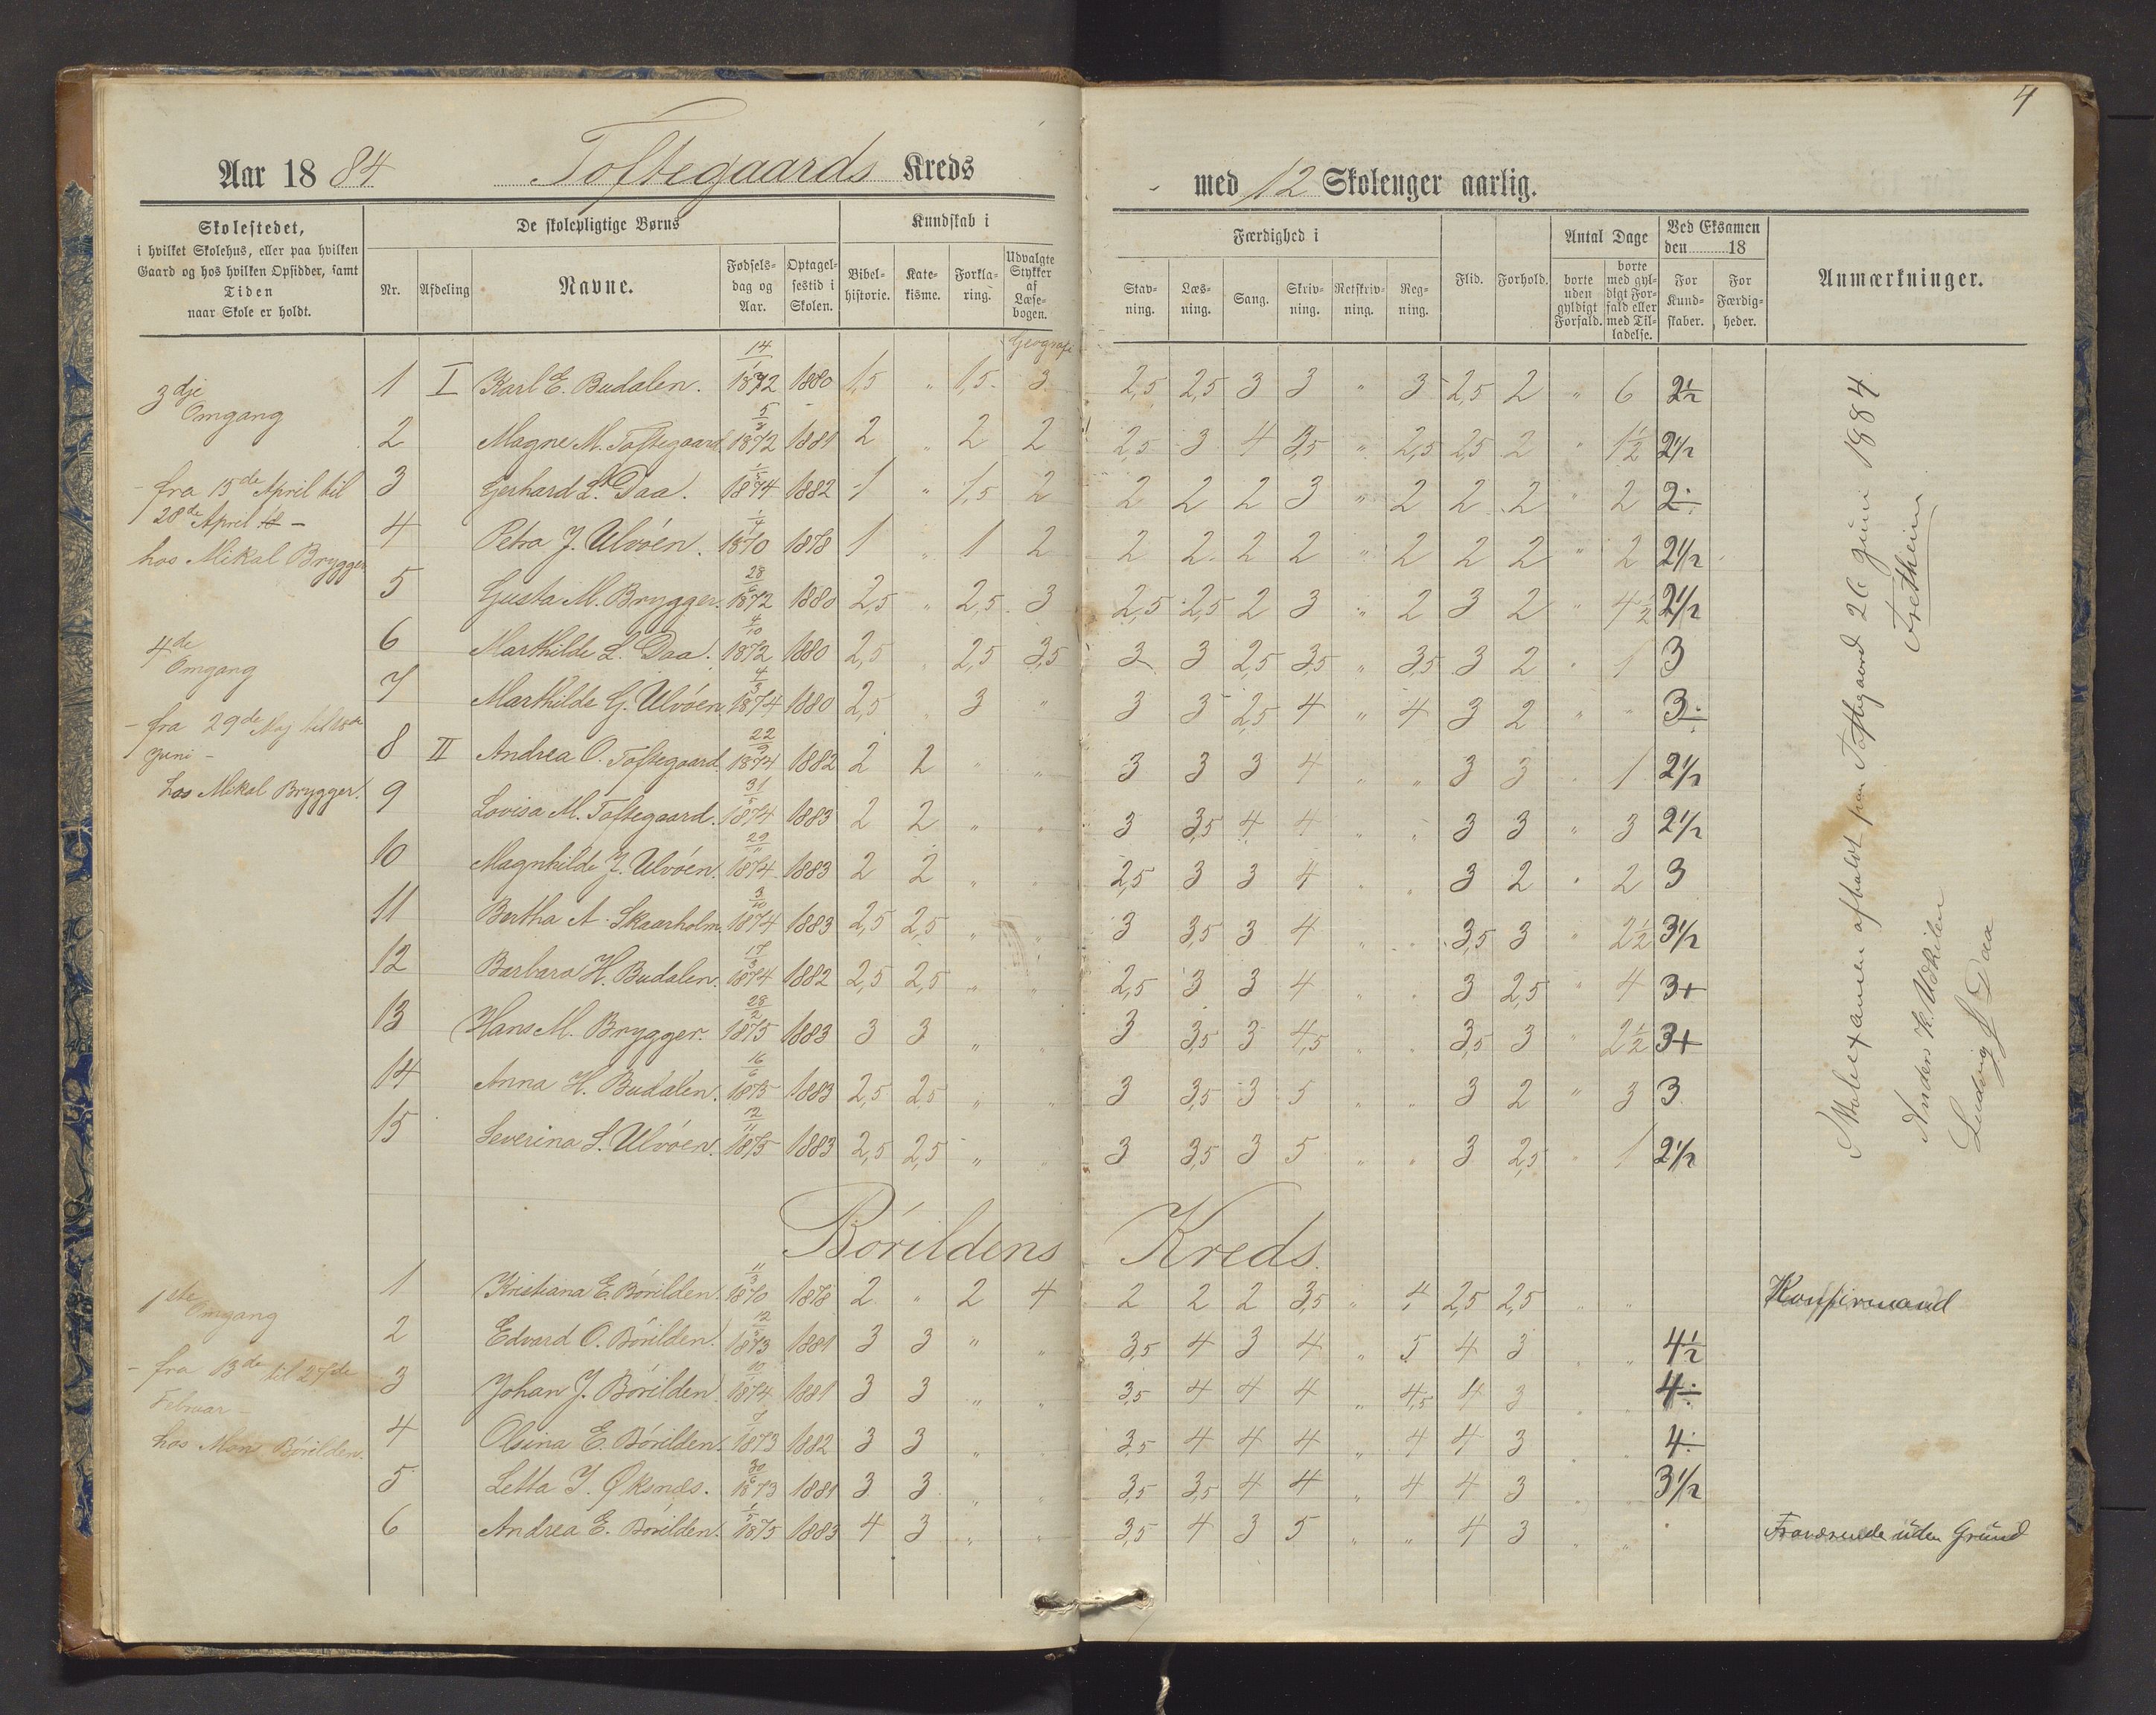 4
Aar 1884 Toftegaards Kreds
med 12 Skolenger aarlig.
Skolestedet,
i hvilket Skolehus, eller paa hvilken
Gaard og hos hvilken Opsidder, samt
Tiden
naar Skole er holdt.
De skolepligtige Børns
Nr. Afdeling Navne. Fødsels-dag og Aar. Optagel-sestid i Skolen.
Kundskab i
Bibel-historie. Kate-kisme. Forkla-ring. Udvalgte Stykker af Læse-bogen.
Færdighed i
Stav-ning. Læs-ning. Sang. Skriv-ning. Retskriv-ning. Reg-ning.
Flid. Forhold.
Antal Dage
borte uden gyldigt Forfald. borte med gyl-digt For-fald eller med Til-ladelse.
Ved Eksamen
den 18
For Kund-skaber. For Færdig-heder.
Anmærkninger.
Geografi
1 I Karl E. Budalen. 14/1 1872 1880 1,5 " 1,5 3 2,5 2,5 3 3 " 3 2,5 2 " 6 2½
2 Magne M. Toftegaard. 1872 1881 2 " 2 2 2,5 3 4 3,5 " 2,5 2,5 2 " 1½ 2½
3 Gerhard L. Daa. 1874 1882 1 " 1,5 2 2 2 2 3 " 2 2 2 " 2 2÷
4 Petra J. Ulvöen. 1870 1878 1 " 1 2 2 2 2 2 " 2 2 2 " 2 2½
5 Gusta M. Brygger. 28/6 1872 1880 2,5 " 2,5 3 2,5 2,5 2 3 " 2 3 2 " 4½ 2½
6 Marthilde L. Daa. 4/10 1872 1880 2,5 " 2,5 3,5 3 3 2,5 3,5 " 3,5 3 2 " 1 3
7 Marthilde G. Ulvöen 4/3 1874 1880 2,5 " 3 " 3 3 2,5 4 " 4 3 2 " " 3÷
8 II Andrea O. Toftegaard. 22/9 1874 1882 2 2 " " 3 3 3 4 " " 3 3 " 1 2½
9 Lovisa M. Toftegaard. 31/5 1874 1883 2 2 " " 3 3,5 4 4 " " 3 3 " 3 2½
10 Magnhilde J. Ulvöen. 29/11 1874 1883 2 2 " " 2,5 3 3 4 " " 3 2 " 2 3
11 Bertha A. Skaarholm. 3/10 1874 1883 2,5 2,5 " " 3 3,5 3 4 " " 3,5 3 " 2½ 3½
12 Barbara H. Budalen. 17/3 1874 1882 2,5 2,5 " " 2,5 3 3 4 " " 3 2,5 " 4 3+
13 Hans M. Brygger. 28/2 1875 1883 3 3 " " 3 3,5 3 4,5 " " 3,5 3 " 2½ 3+
14 Anna H. Budalen. 16/6 1875 1883 2,5 2,5 " " 3 3,5 3 5 " " 3 2 " 3 3
15 Severina S. Ulvöen. 12/11 1875 1883 2,5 2,5 " " 3 3,5 3 5 " " 3 2,5 " 1 2½
3dje
Omgang
- fra 15de April til
28de April -
hos Mikal Brygger
4de
Omgang
- fra 29de Maj til
Juni -
hos Mikal Brygger.
Skoleexamen afholdt paa Toftegaard 26 Juni 1884
Fretheim
Anders K.
Ludvig Daa
Börildens Kreds.
1 Kristiana E. Börilden. 11/3 1870 1878 2 " 2 4 2 2 2 3,5 " 4 2,5 2,5 " " Konfirmand
2 Edvard O. Börilden. 1873 1881 3 3 " " 3,5 4 3 4 " 5 4 3 " " 4½
3 Johan J. Börilden. 1874 1881 3 3 " " 3,5 4 4 4 " 4,5 4 3 " " 4÷
4 Olsina E. Börilden. 1873 1882 3 3 " " 3,5 4 4 4 " 4 4 3 " " 4÷
5 Letta J. Øksnæs. 30/6 1873 1881 3 3 " " 3,5 3,5 4 4 " 4 4 3 " " 3½
6 Andrea E. Börilden. 1/5 1875 1883 4 3 " " 3,5 4 3 5 " " 4 3 " " Fraværende uden Grund
1ste
Omgang
- fra 13de til 27de
Februar -
hos Mons Börilden.